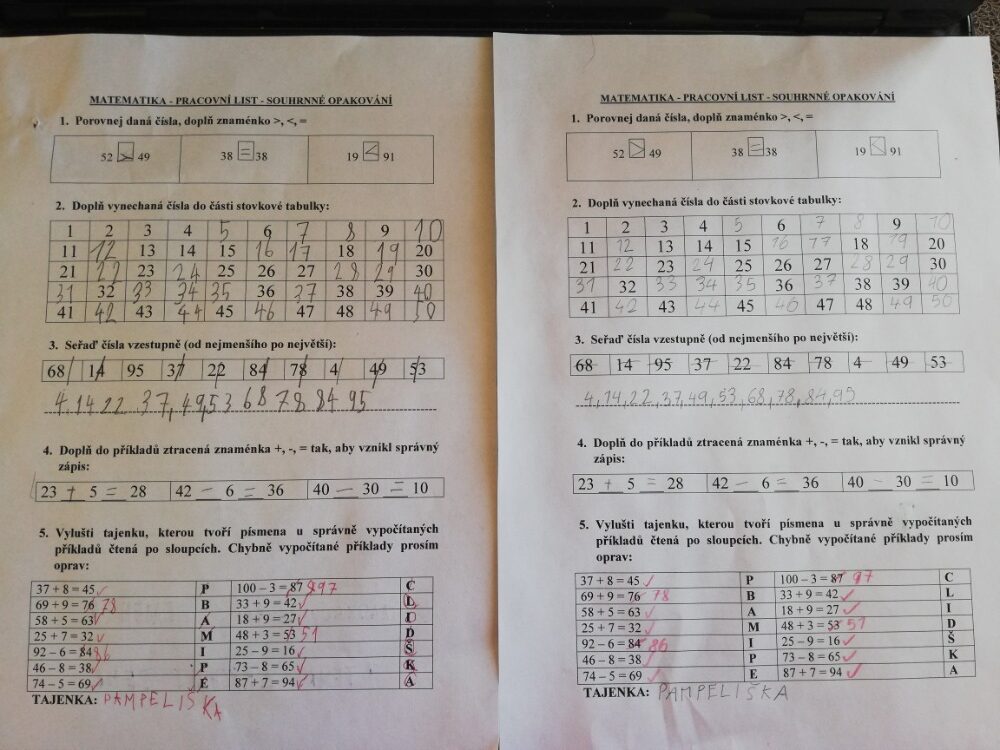 MATEMATIKA - PRACOVNÍ LIST - SOUHRNNÉ OPAKOVÁNÍ
1. Porovnej daná čísla, doplň znaménko >, <, =
52 > 49 38 = 38 19 < 91
2. Doplň vynechaná čísla do části stovkové tabulky:
1 2 3 4 5 6 7 8 9 10
11 12 13 14 15 16 17 18 19 20
21 22 23 24 25 26 27 28 29 30
31 32 33 34 35 36 37 38 39 40
41 42 43 44 45 46 47 48 49 50
3. Seřaď čísla vzestupně (od nejmenšího po největší):
68 14 95 37 22 84 78 4 49 53
4, 14 22 37, 49, 53 68 78 84 95
4. Doplň do příkladů ztracená znaménka +, -, = tak, aby vznikl správný
zápis:
23 + 5 = 28 42 - 6 = 36 40 - 30 = 10
5. Vylušti tajenku, kterou tvoří písmena u správně vypočítaných
příkladů čtená po sloupcích. Chybně vypočítané příklady prosím
oprav:
37 + 8 = 45 ✓ P 100 – 3 = 87 97 C
69 + 9 = 76 78 B 33 + 9 = 42 ✓ L
58 + 5 = 63 ✓ A 18 + 9 = 27 ✓ I
25 + 7 = 32 ✓ M 48 + 3 = 53 51 D
92 – 6 = 84 86 I 25 – 9 = 16 ✓ Š
46 – 8 = 38 ✓ P 73 – 8 = 65 ✓ K
74 – 5 = 69 ✓ E 87 + 7 = 94 ✓ A
TAJENKA: PAMPELIŠKA
MATEMATIKA - PRACOVNÍ LIST - SOUHRNNÉ OPAKOVÁNÍ
1. Porovnej daná čísla, doplň znaménko >, <, =
52 > 49 38 = 38 19 < 91
2. Doplň vynechaná čísla do části stovkové tabulky:
1 2 3 4 5 6 7 8 9 10
11 12 13 14 15 16 17 18 19 20
21 22 23 24 25 26 27 28 29 30
31 32 33 34 35 36 37 38 39 40
41 42 43 44 45 46 47 48 49 50
3. Seřaď čísla vzestupně (od nejmenšího po největší):
68 14 95 37 22 84 78 4 49 53
4, 14, 22, 37, 49, 53, 68, 78, 84, 95
4. Doplň do příkladů ztracená znaménka +, -, = tak, aby vznikl správný
zápis:
23 + 5 = 28 42 - 6 = 36 40 - 30 = 10
5. Vylušti tajenku, kterou tvoří písmena u správně vypočítaných
příkladů čtená po sloupcích. Chybně vypočítané příklady prosím
oprav:
37 + 8 = 45 ✓ P 100 – 3 = 87 97 C
69 + 9 = 76 78 B 33 + 9 = 42 ✓ L
58 + 5 = 63 ✓ A 18 + 9 = 27 ✓ I
25 + 7 = 32 ✓ M 48 + 3 = 53 51 D
92 – 6 = 84 86 I 25 – 9 = 16 ✓ Š
46 – 8 = 38 ✓ P 73 – 8 = 65 ✓ K
74 – 5 = 69 ✓ E 87 + 7 = 94 ✓ A
TAJENKA: PAMPELIŠKA